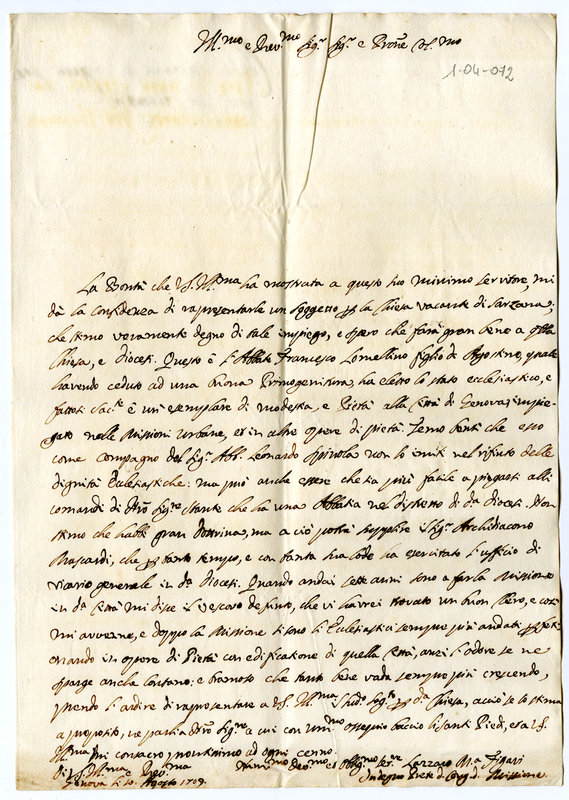 Ill.mo e Rev.mo Sig.r Sig.r e Prõne Col.mo
1-04-072
La Bontà che V.S. Ill.ma ha mostrata a questo suo minimo servitore, mi
dà la confidenza di rapresentarle un soggetto per la Chiesa vacante di Sarzana,
che stimo veramente degno di tale impiego, e spero che farà gran bene a q̃lla
Chiesa, e diocesi. Questo è l'Abbate Francesco Lomellino figlio di Agostino, quale
havendo ceduto ad una buona Primogenitura, ha eletto lo stato ecclesiastico, e
fattosi Sac.te è un esemplare di modestia, e Pietà alla Città di Genova; impie-
gato nelle Missioni urbane, et in altre opere di pietà. Temo bensì che esso
come compagno del Sig.r Abb. Leonardo Spinola non lo imiti nel rifiuto delle
dignità Ecclesiastiche: ma può anche essere che sia più facile a piegarsi alli
comandi di Nrõ Sig.re stante che ha una Abbatia nel distretto di d.a diocesi. Non
stimo che habbi gran dottrina, ma a ciò potrà supplire il Sig.r Archidiacono
Mascardi, che per tanto tempo, e con tanta sua lode ha esercitato l'ufficio di
vicario generale in d.a diocesi. Quando andai sette anni sono a far la Missione
in d.a Città mi disse il vescovo defunto, che vi havrei trovato un buon Clero, e così
mi avvenne, e doppo la Missione si sono li Ecclesiastici sempre più andati perfeti-
onando in opere di Pietà con edificatione di quella Città, anzi l'odore se ne
sparge anche lontano: e bramoso che tanto bene vada sempre più crescendo,
prendo l'ardire di rapresentare a V.S. Ill.ma il sud.o sog.to per d.a Chiesa, acciò se lo stima
a proposito, ne parli a Nrõ Sig.re a cui con um.mo ossequio baccio li santi Piedi, et a V.S.
Ill.ma mi consacro, prontissimo ad ogni cenno.
di V.S. Ill.ma e Rev.ma
Genova li 10. Agosto 1709.
Um.mo Dev.mo ed Oblig.mo Ser.re Lanzaro M.a Figari
Indegno Prete d. Cong. d. Missione